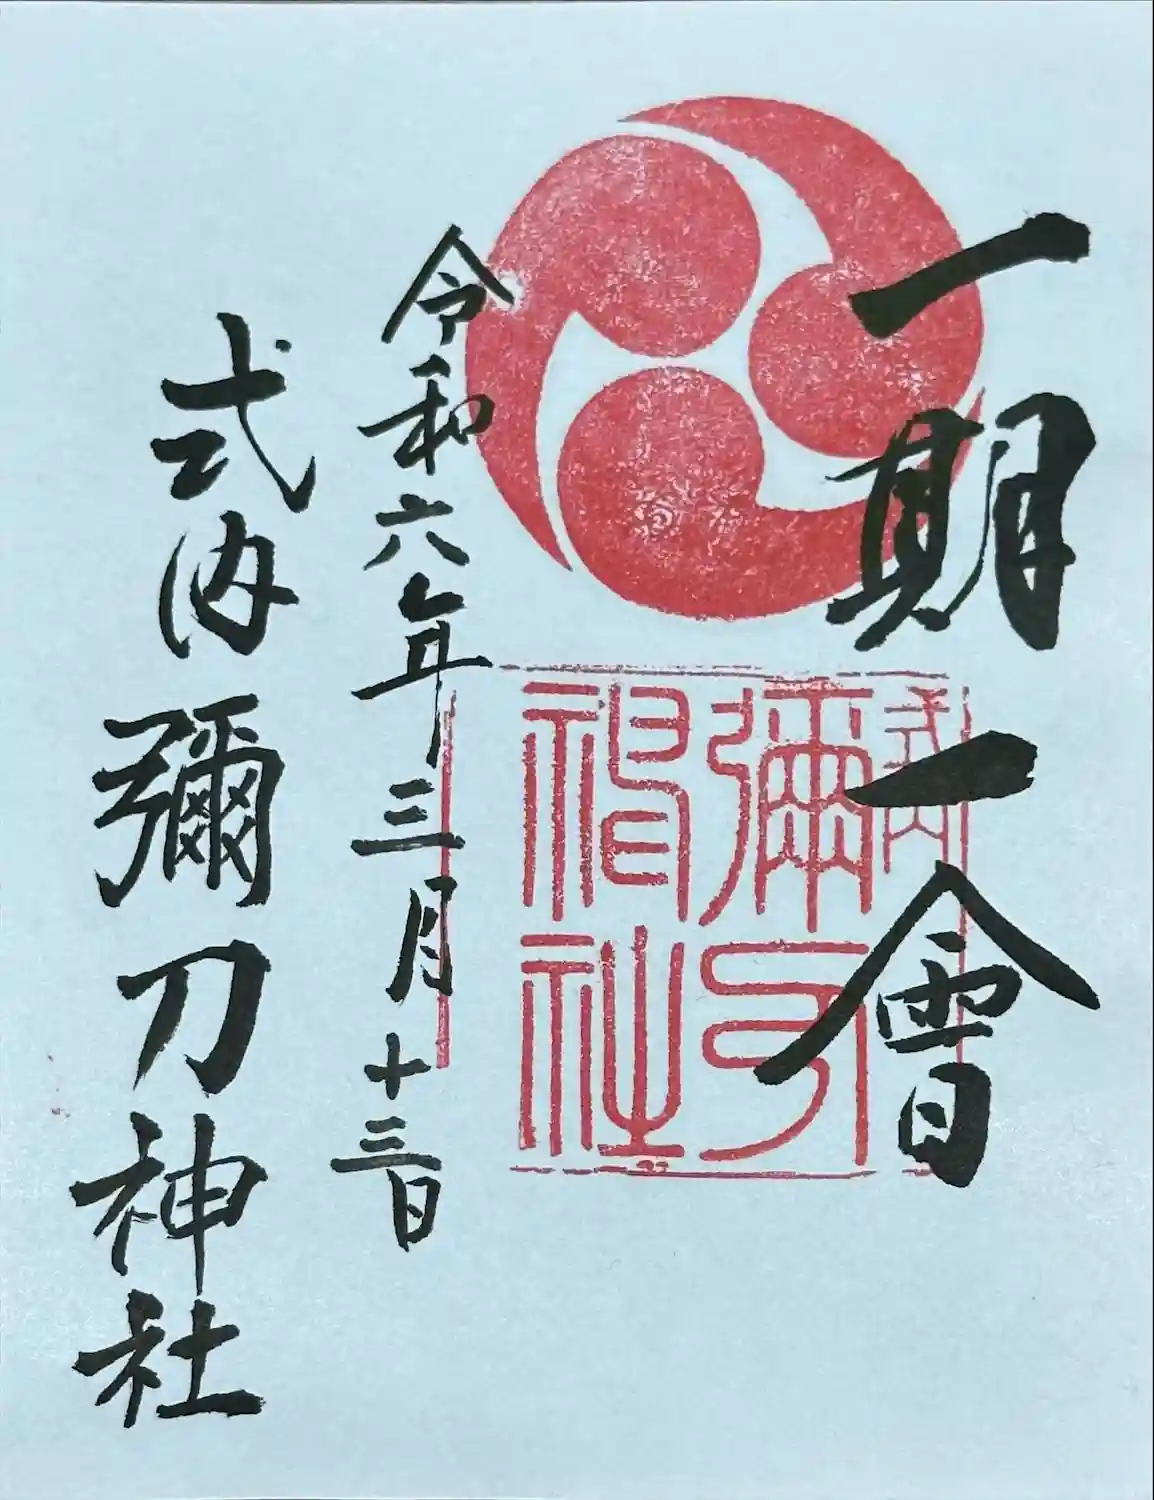 一期一會
式内
彌刀
神社
令和六年三月十三日
式内彌刀神社